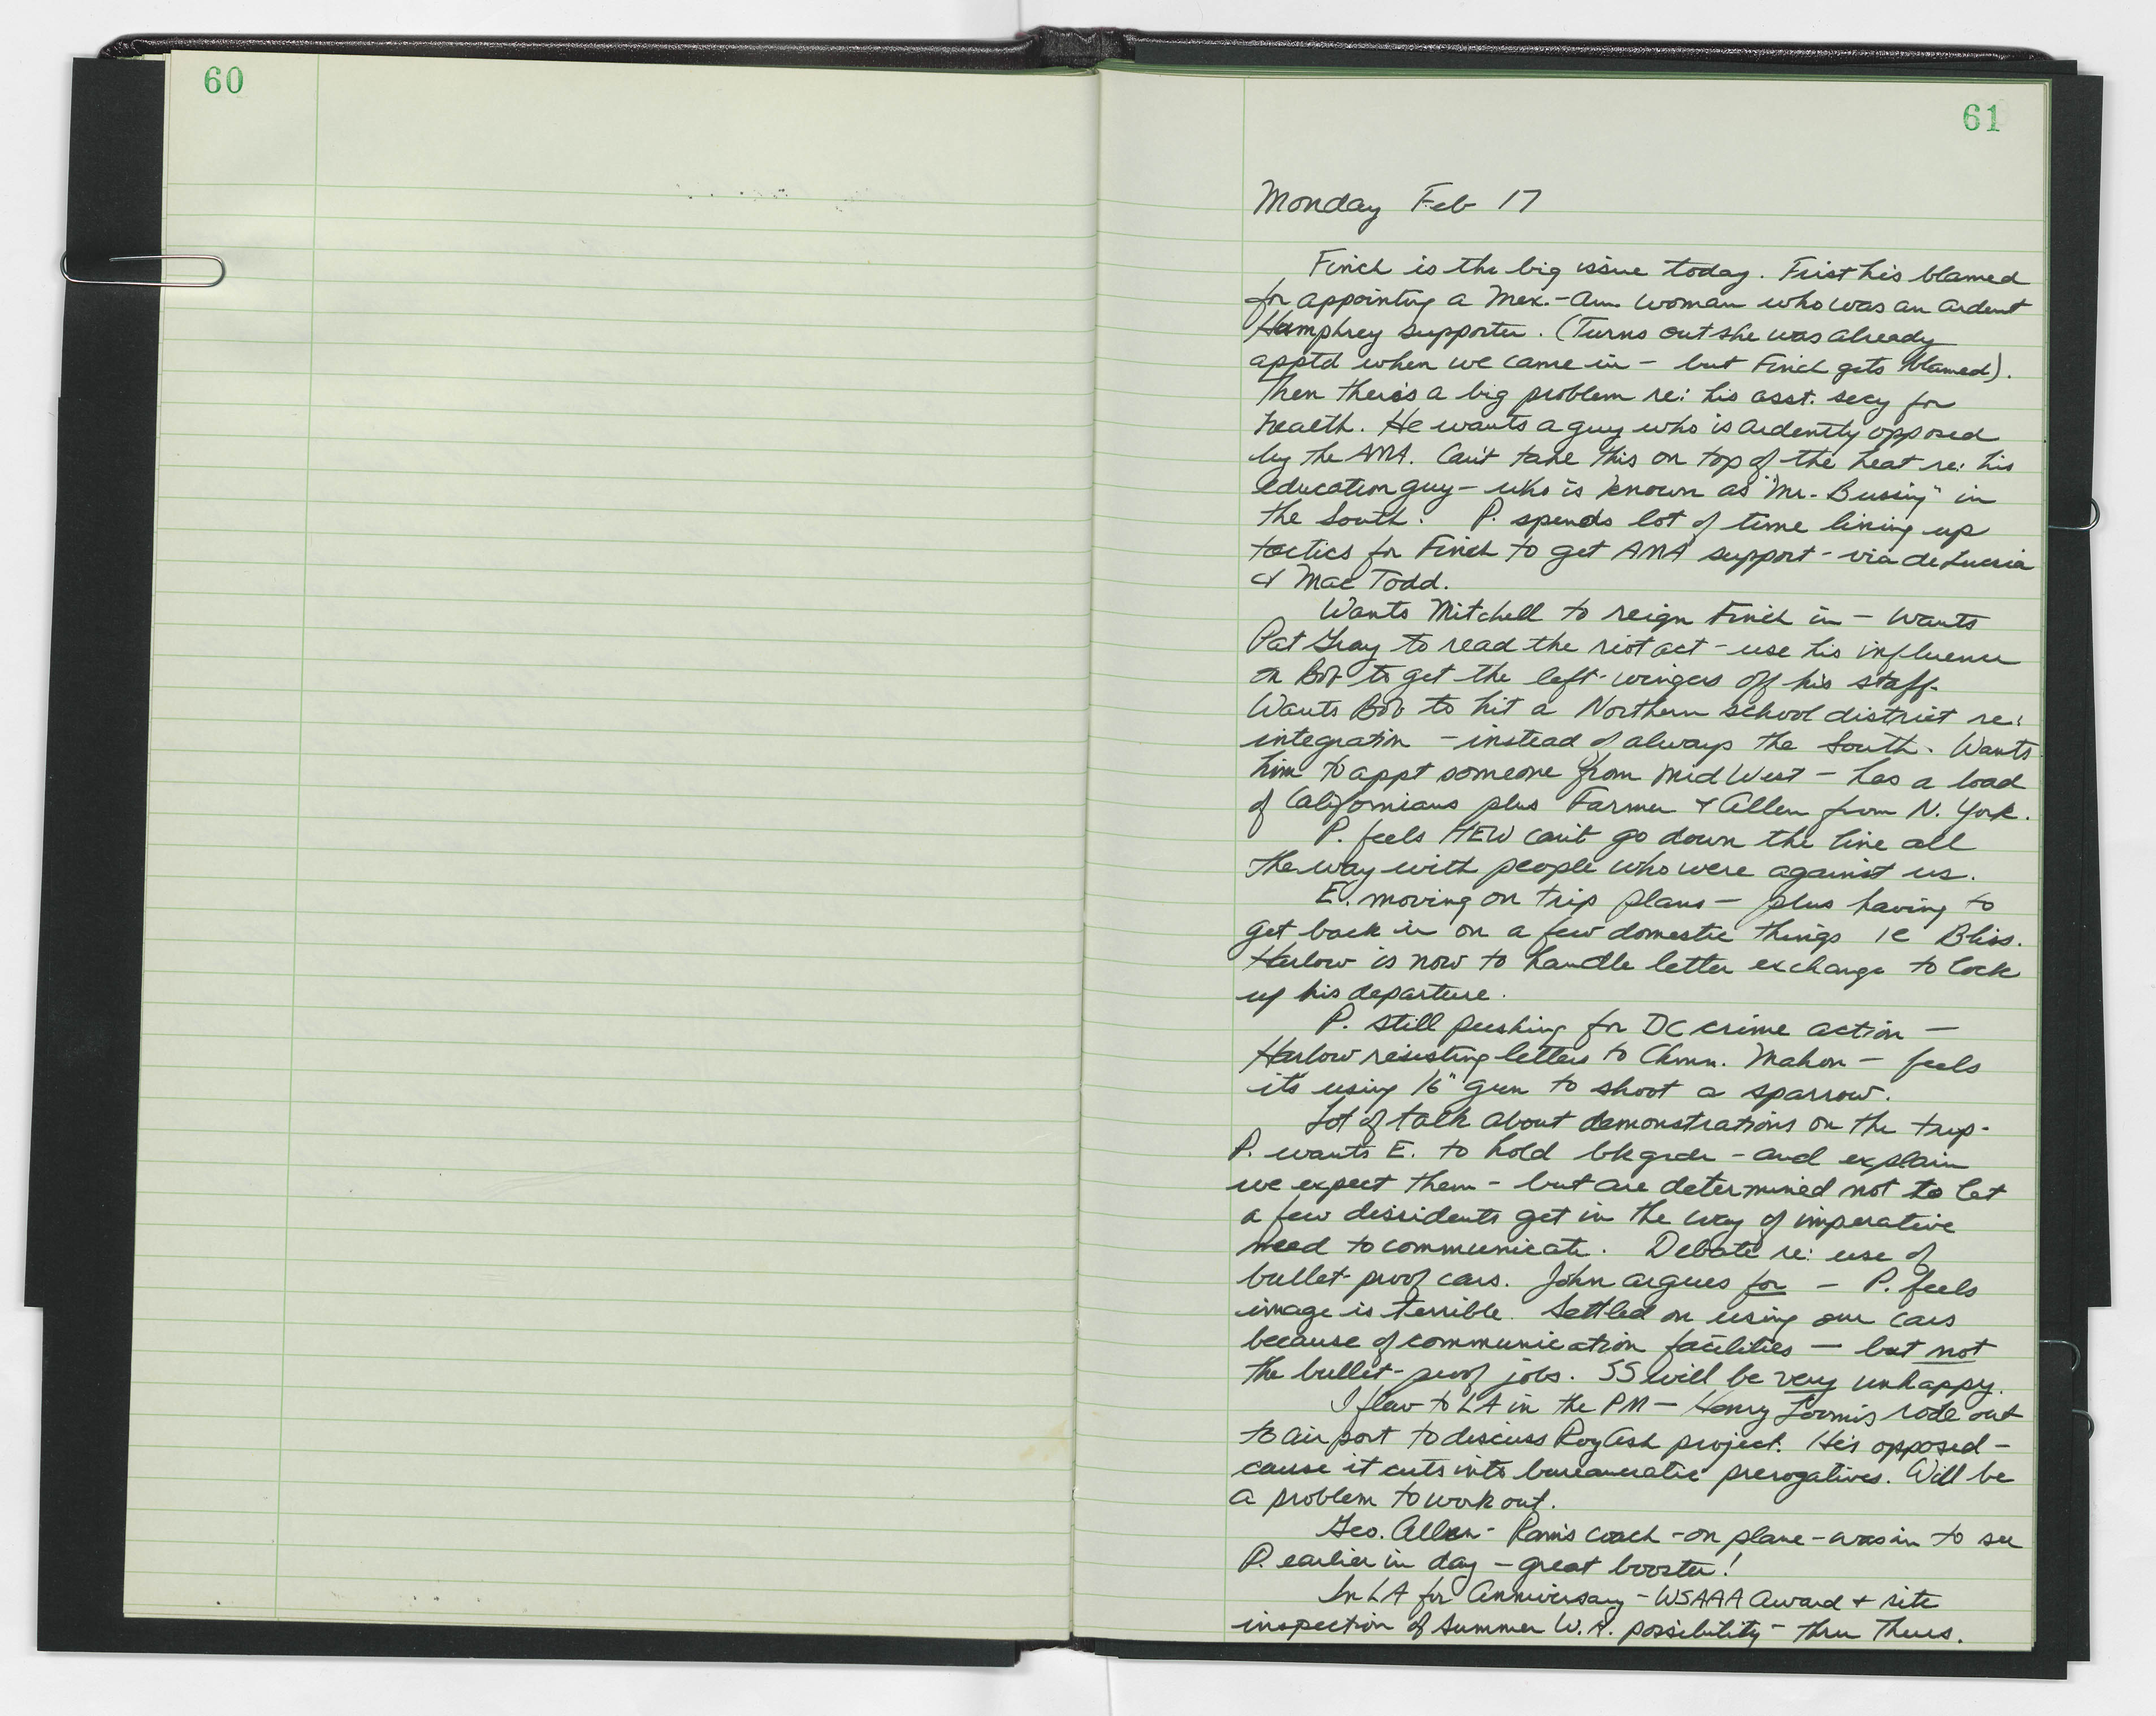 60
61
Monday Feb 17
Finch is the big issue today. First his blamed
for appointing a Mex.-Am. woman who was an ardent
Humphrey supporter. (Turns out she was already
apptd when we came in - but Finch gets blamed).
Then there's a big problem re: his asst. secy for
health. He wants a guy who is ardently opposed
by the AMA. Can't take this on top of the heat re: his
education guy - who is known as "Mr. Bussing" in
the South. P. spends lot of time lining up
tactics for Finch to get AMA support - via deLucia
& Mac Todd.
Wants Mitchell to reign Finch in - wants
Pat Gray to read the riot act - use his influence
on Bob to get the left-wingers off his staff.
Wants Bob to hit a Northern school district re:
integration - instead of always the South. Wants
him to appt someone from Mid West - has a load
of Californians plus Farmer & Allen from N. York.
P. feels HEW can't go down the line all
the way with people who were against us.
E. moving on trip plans - plus having to
get back in on a few domestic things ie Bliss.
Harlow is now to handle letter exchange to lock
up his departure.
P. still pushing for DC crime action -
Harlow resisting letters to Chmn. Mahon - feels
its using 16" gun to shoot a sparrow.
Lot of talk about demonstrations on the trip.
P. wants E. to hold bkgrdr - and explain
we expect them - but are determined not to let
a few dissidents get in the way of imperative
need to communicate. Debate re: use of
bullet-proof cars. John argues for - P. feels
image is terrible. Settled on using our cars
because of communication facilities - but not
the bullet-proof jobs. SS will be very unhappy.
I flew to LA in the PM - Henry Loomis rode out
to airport to discuss Roy Ash project. He's opposed -
cause it cuts into bureaucratic prerogatives. Will be
a problem to work out.
Geo. Allen - Rams coach - on plane - was in to see
P. earlier in day - great booster!
In LA for Anniversary - WSAAA Award + site
inspection of Summer W.H. possibility - thru Thurs.